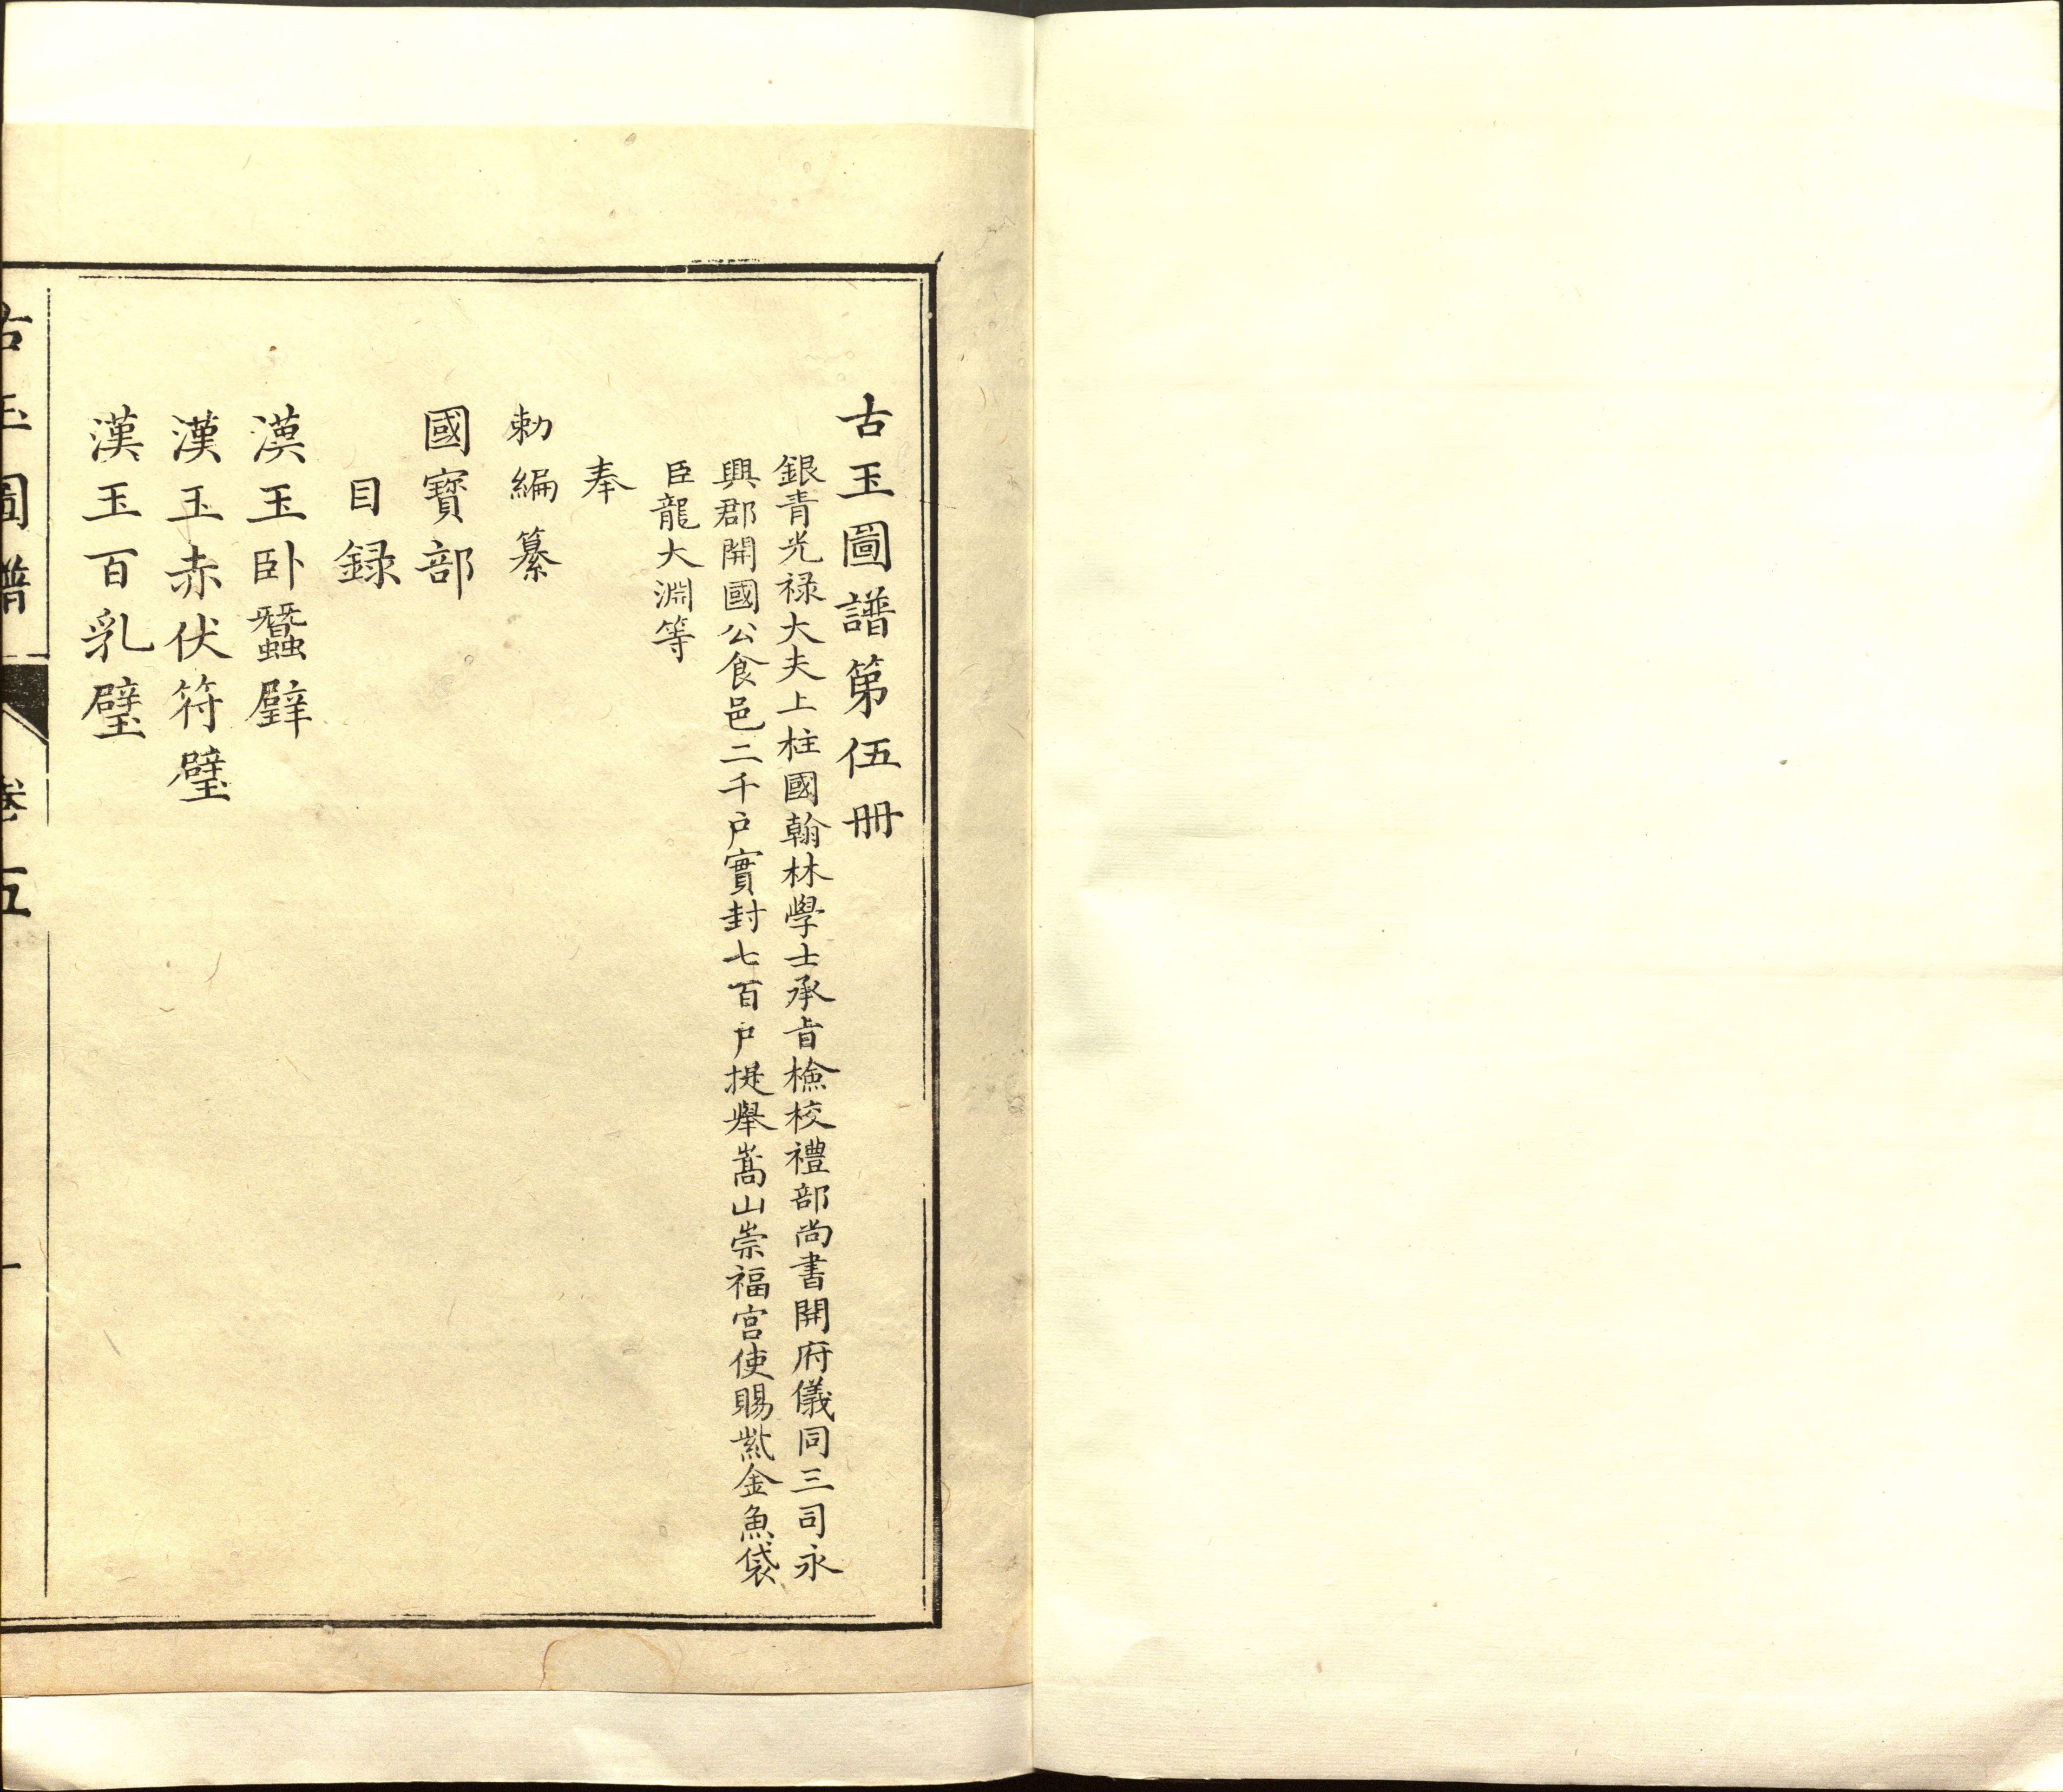 古玉圖譜第伍冊
銀青光禄大夫上柱國翰林學士承旨檢校禮部尚書開府儀同三司永
興郡開國公食邑二千户實封七百户提舉嵩山崇福宮使賜紫金魚袋
臣龍大淵等
奉
勅編纂
國寶部
目録
漢玉卧蠶璧
漢玉赤伏符璧
漢玉百乳璧
古玉圖譜 卷五 一